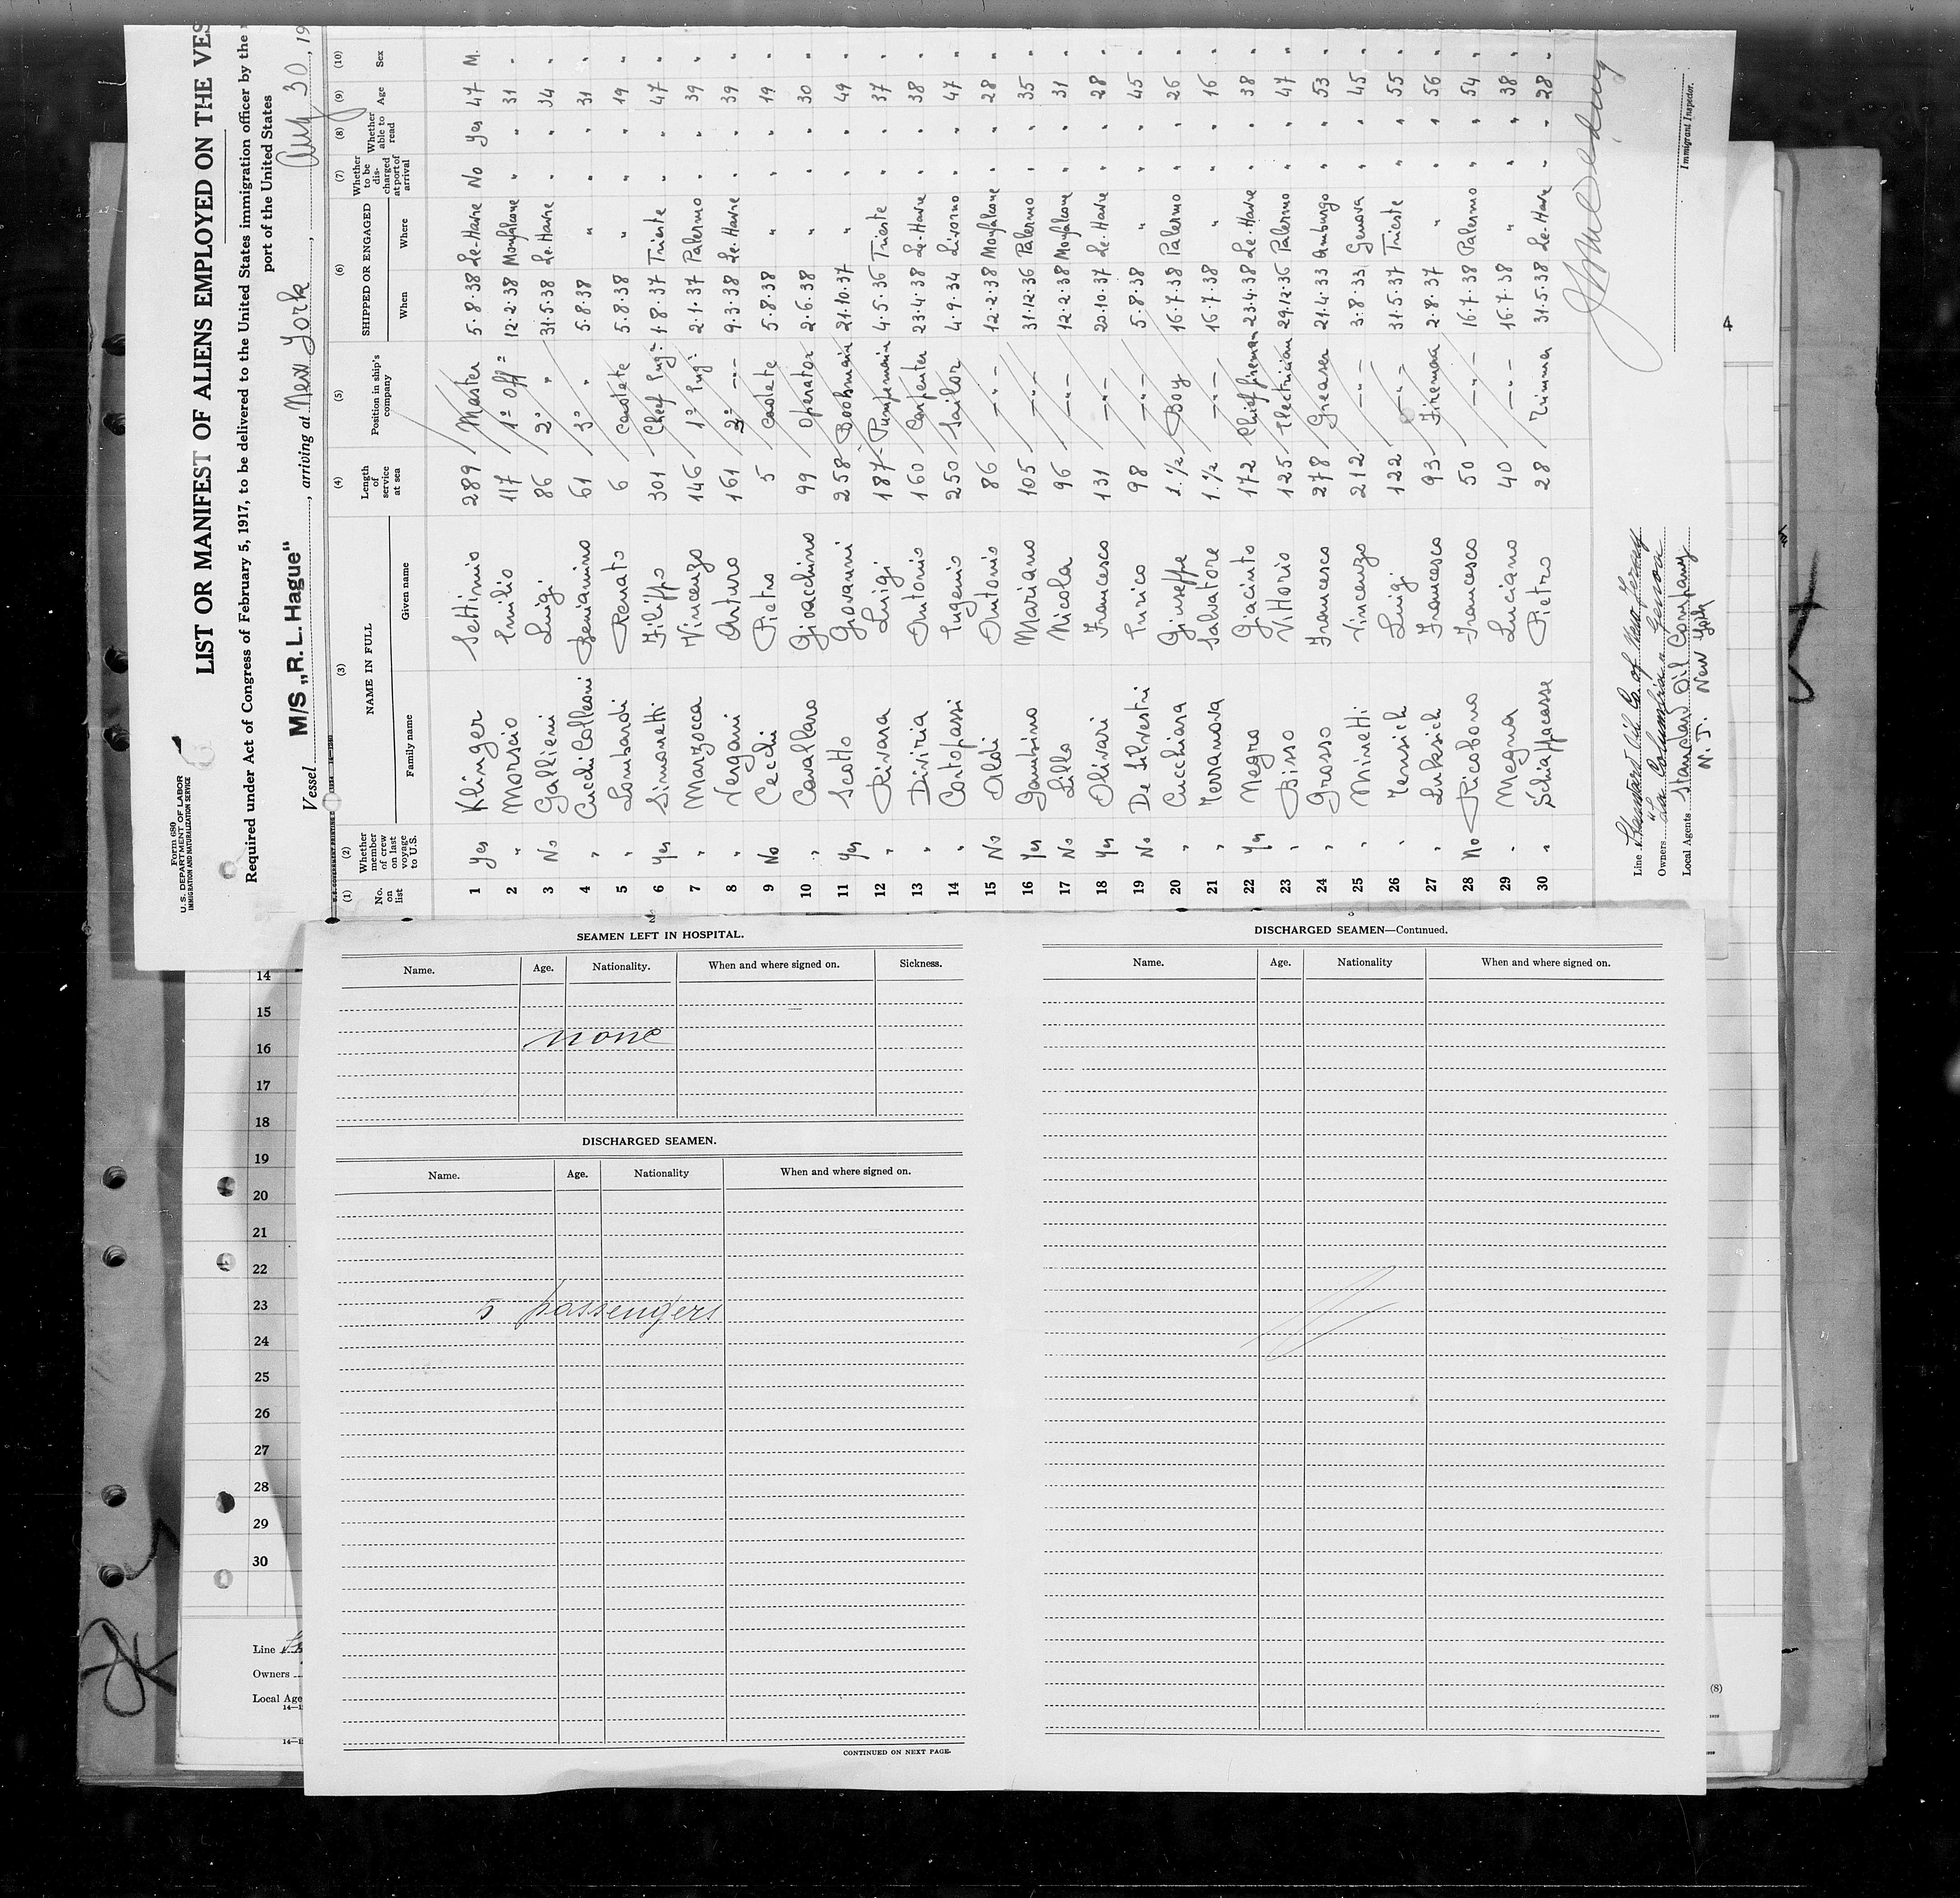 Form 680
U. S. DEPARTMENT OF LABOR
IMMIGRATION AND NATURALIZATION SERVICE
LIST OR MANIFEST OF ALIENS EMPLOYED ON THE VES
Required under Act of Congress of February 5, 1917, to be delivered to the United States immigration officer by the
port of the United States
Vessel M/S „R. L. Hague" , arriving at New York , Aug 30 , 19
(1) (2) (3) (4) (5) (6) (7) (8) (9) (10)
No. on list Whether member of crew on last voyage to U.S. NAME IN FULL Family name Given name Length of service at sea Position in ship's company SHIPPED OR ENGAGED When Where Whether to be discharged at port of arrival Whether able to read Age Sex
1 Yes Klinger Settimio 289 Master 5.8.38 Le-Havre No Yes 47 M.
2 " Morscio Emilio 117 1° Off 12.2.38 Monfalcone " " 31 "
3 No Gallieni Luigi 86 2° " 31.5.38 Le Havre " " 34 "
4 " Cucchi Colleoni Beniamino 61 3° " 5.8.38 " " " 31 "
5 " Lombardi Renato 6 Cadete 5.8.38 " " " 19 "
6 Yes Simonetti Filippo 301 Cheef Eng: 1.8.37 Trieste " " 47 "
7 " Marzocca Vincenzo 146 1° Eng: 2.1.37 Palermo " " 39 "
8 " Vergani Arturo 161 2° -"- 9.3.38 Le Havre " " 39 "
9 No Cecchi Pietro 5 Cadete 5.8.38 " " " 19 "
10 " Cavallaro Gioacchino 99 Operator 2.6.38 " " " 30 "
11 Yes Scotto Giovanni 258 21.10.37 " " " 49 "
12 " Rivara Luigi 187 4.5.36 Trieste " " 37 "
13 " Diviria Antonio 160 Carpenter 23.4.38 Le Havre " " 38 "
14 " Cortopassi Eugenio 250 Sailor 4.9.34 Livorno " " 47 "
15 No Aldi Antonio 86 -"- 12.2.38 Monfalcone " " 28 "
16 Yes Gambino Mariano 105 -"- 31.12.36 Palermo " " 35 "
17 No Lillo Nicola 96 -"- 12.2.38 Monfalcone " " 31 "
18 Yes Olivari Francesco 131 -"- 20.10.37 Le Havre " " 28 "
19 No De Silvestri Enrico 98 -"- 5.8.38 " " " 45 "
20 " Cucchiara Giuseppe 1.½ Boy 16.7.38 Palermo " " 26 "
21 " Terranova Salvatore 1.½ -"- 16.7.38 " " " 16 "
22 Yes Negro Giacinto 172 Chief fireman 23.4.38 Le Havre " " 38 "
23 " Bisso Vittorio 125 Electrician 29.12.36 Palermo " " 47 "
24 " Grosso Francesco 278 Greaser 21.4.33 Amburgo " " 53 "
25 " Minetti Vincenzo 212 -"- 3.8.33 Genova " " 45 "
26 " Luigi 122 -"- 31.5.37 Trieste " " 55 "
27 " Lukesich Francesco 93 Fireman 2.8.37 " " " 56 "
28 No Ricobono Francesco 50 -"- 16.7.38 Palermo " " 54 "
29 " Megna Luciano 40 -"- 16.7.38 " " " 38 "
30 " Schiaffacasse Pietro 28 Trimmer 31.5.38 Le Havre " " 28 "
Line Standard Oil Co. of New Jersey
Owners "La Columbia" Genova
Local Agents Standard Oil Company
N. J. New York
Immigrant Inspector.
SEAMEN LEFT IN HOSPITAL.
Name. Age. Nationality. When and where signed on. Sickness.
none
DISCHARGED SEAMEN.
Name. Age. Nationality When and where signed on.
5 passengers
CONTINUED ON NEXT PAGE.
DISCHARGED SEAMEN—Continued.
Name. Age. Nationality When and where signed on.
14
15
16
17
18
19
20
21
22
23
24
25
26
27
28
29
30
Line
Owners
Local Age
(8)